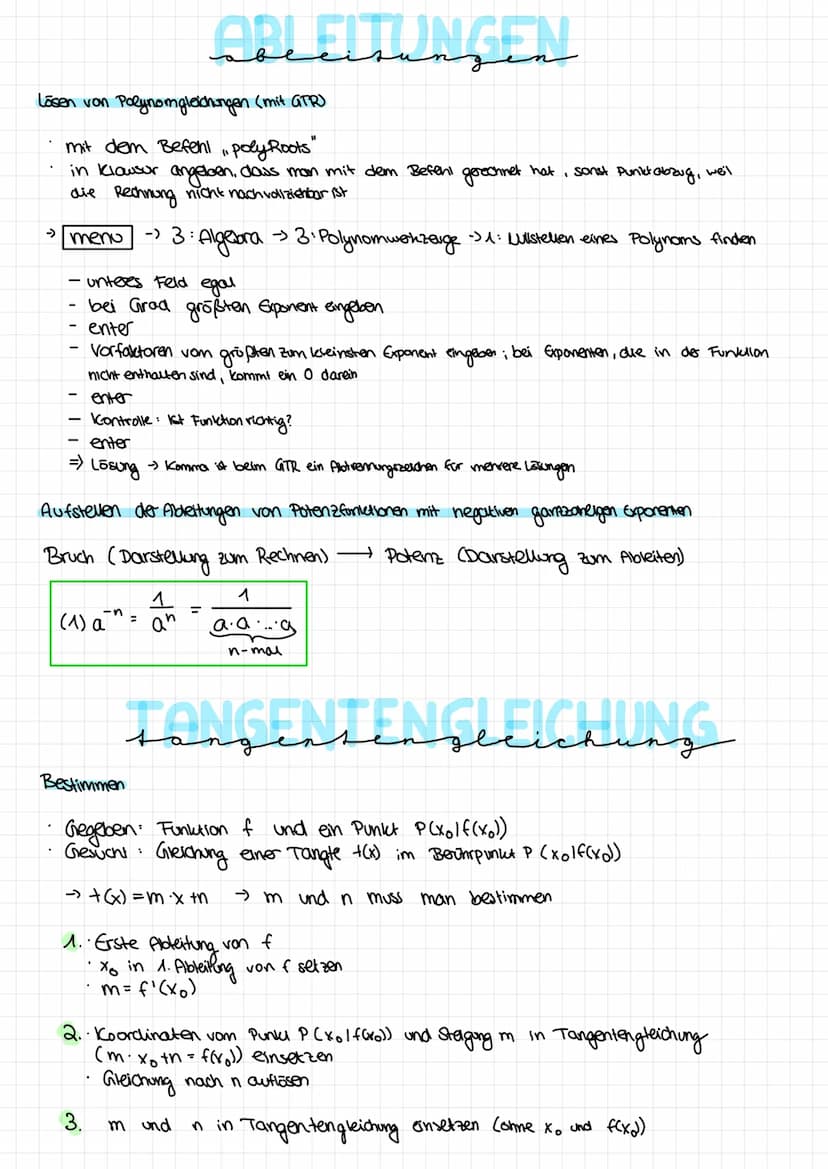 ABLEITUNGEN
ableitungen
Lösen von Polynomgleichungen (mit GTR)
· mit dem Befehl „polyRoots"
· in Klausur angeben, dass man mit dem Befehl gerechnet hat, sonst Punktabzug, weil
die Rechnung nicht nachvollziehbar ist
→ menu -> 3: Algebra → 3: Polynomwerkzeuge -> 1: Nullstellen eines Polynoms finden
- unteres Feld egal
- bei Grad größten Exponent eingeben
- enter
- Vorfaktoren vom größten zum kleinsten Exponent eingeben; bei Exponenten, die in der Funktion
nicht enthalten sind, kommt ein 0 darein
- enter
- Kontrolle: Ist Funktion richtig?
- enter
⇒ Lösung → Komma ist beim GTR ein Abtrennungszeichen für mehrere Lösungen
Aufstellen der Ableitungen von Potenzfunktionen mit negativen ganzzahligen Exponenten
Bruch (Darstellung zum Rechnen) ⟶ Potenz (Darstellung zum Ableiten)
(1) a^-n = 1/a^n = 1/(a·a·...·a)
n-mal
TANGENTENGLEICHUNG
tangentengleichung
Bestimmen
· Gegeben: Funktion f und ein Punkt P(x₀|f(x₀))
· Gesucht: Gleichung einer Tangte t(x) im Berührpunkt P (x₀|f(x₀))
→ t(x) = m·x+n → m und n muss man bestimmen
1. · Erste Ableitung von f
· x₀ in 1. Ableitung von f setzen
· m = f'(x₀)
2. · Koordinaten vom Punkt P (x₀|f(x₀)) und Steigung m in Tangentengleichung
(m·x₀+n = f(x₀)) einsetzen
· Gleichung nach n auflösen
3. m und n in Tangentengleichung einsetzen (ohne x₀ und f(x₀))